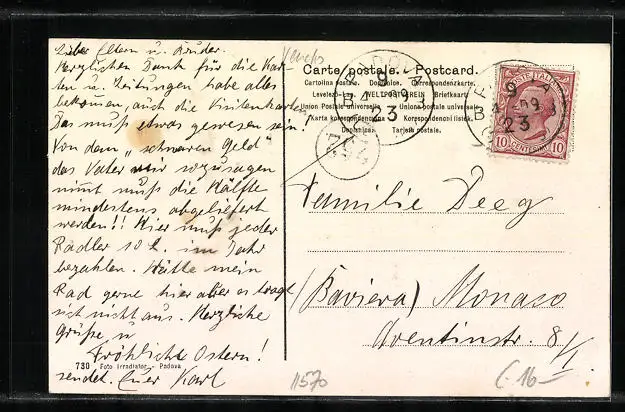 Liebe Eltern u. Bruder.
Herzlichen Dank für die Kar
ten u. Zeitungen habe alles
bekommen, auch die Visitenkarten
Das muß etwas gewesen sein!
Von dem „schweren Geld"
das Vater mir sozusagen
nimmt muß die Hälfte
mindestens abgeliefert
werden!! Hier muß jeder
Radler 10 l. im Jahr
bezahlen. Hätte mein
Rad gerne hier aber es tragt
sich nicht aus. Herzliche
Grüße u
Fröhliche Ostern!
730 Foto Irradiator - Padova
sendet Euer Karl
Carte postale. Postcard.
Cartolina postale. Correspondenzkarte.
WELTPOSTVEREIN Briefkaart
Union Postale universelle Unione postale universale
Karta korespondencyjna Korespondenční lístek.
Tarjeta postal.
POSTE ITALIANE
10 CENTESIMI 10
23
23
Familie Deeg
(Baviera) Monaco
Aventinstr. 8/I.
11570
C 16-